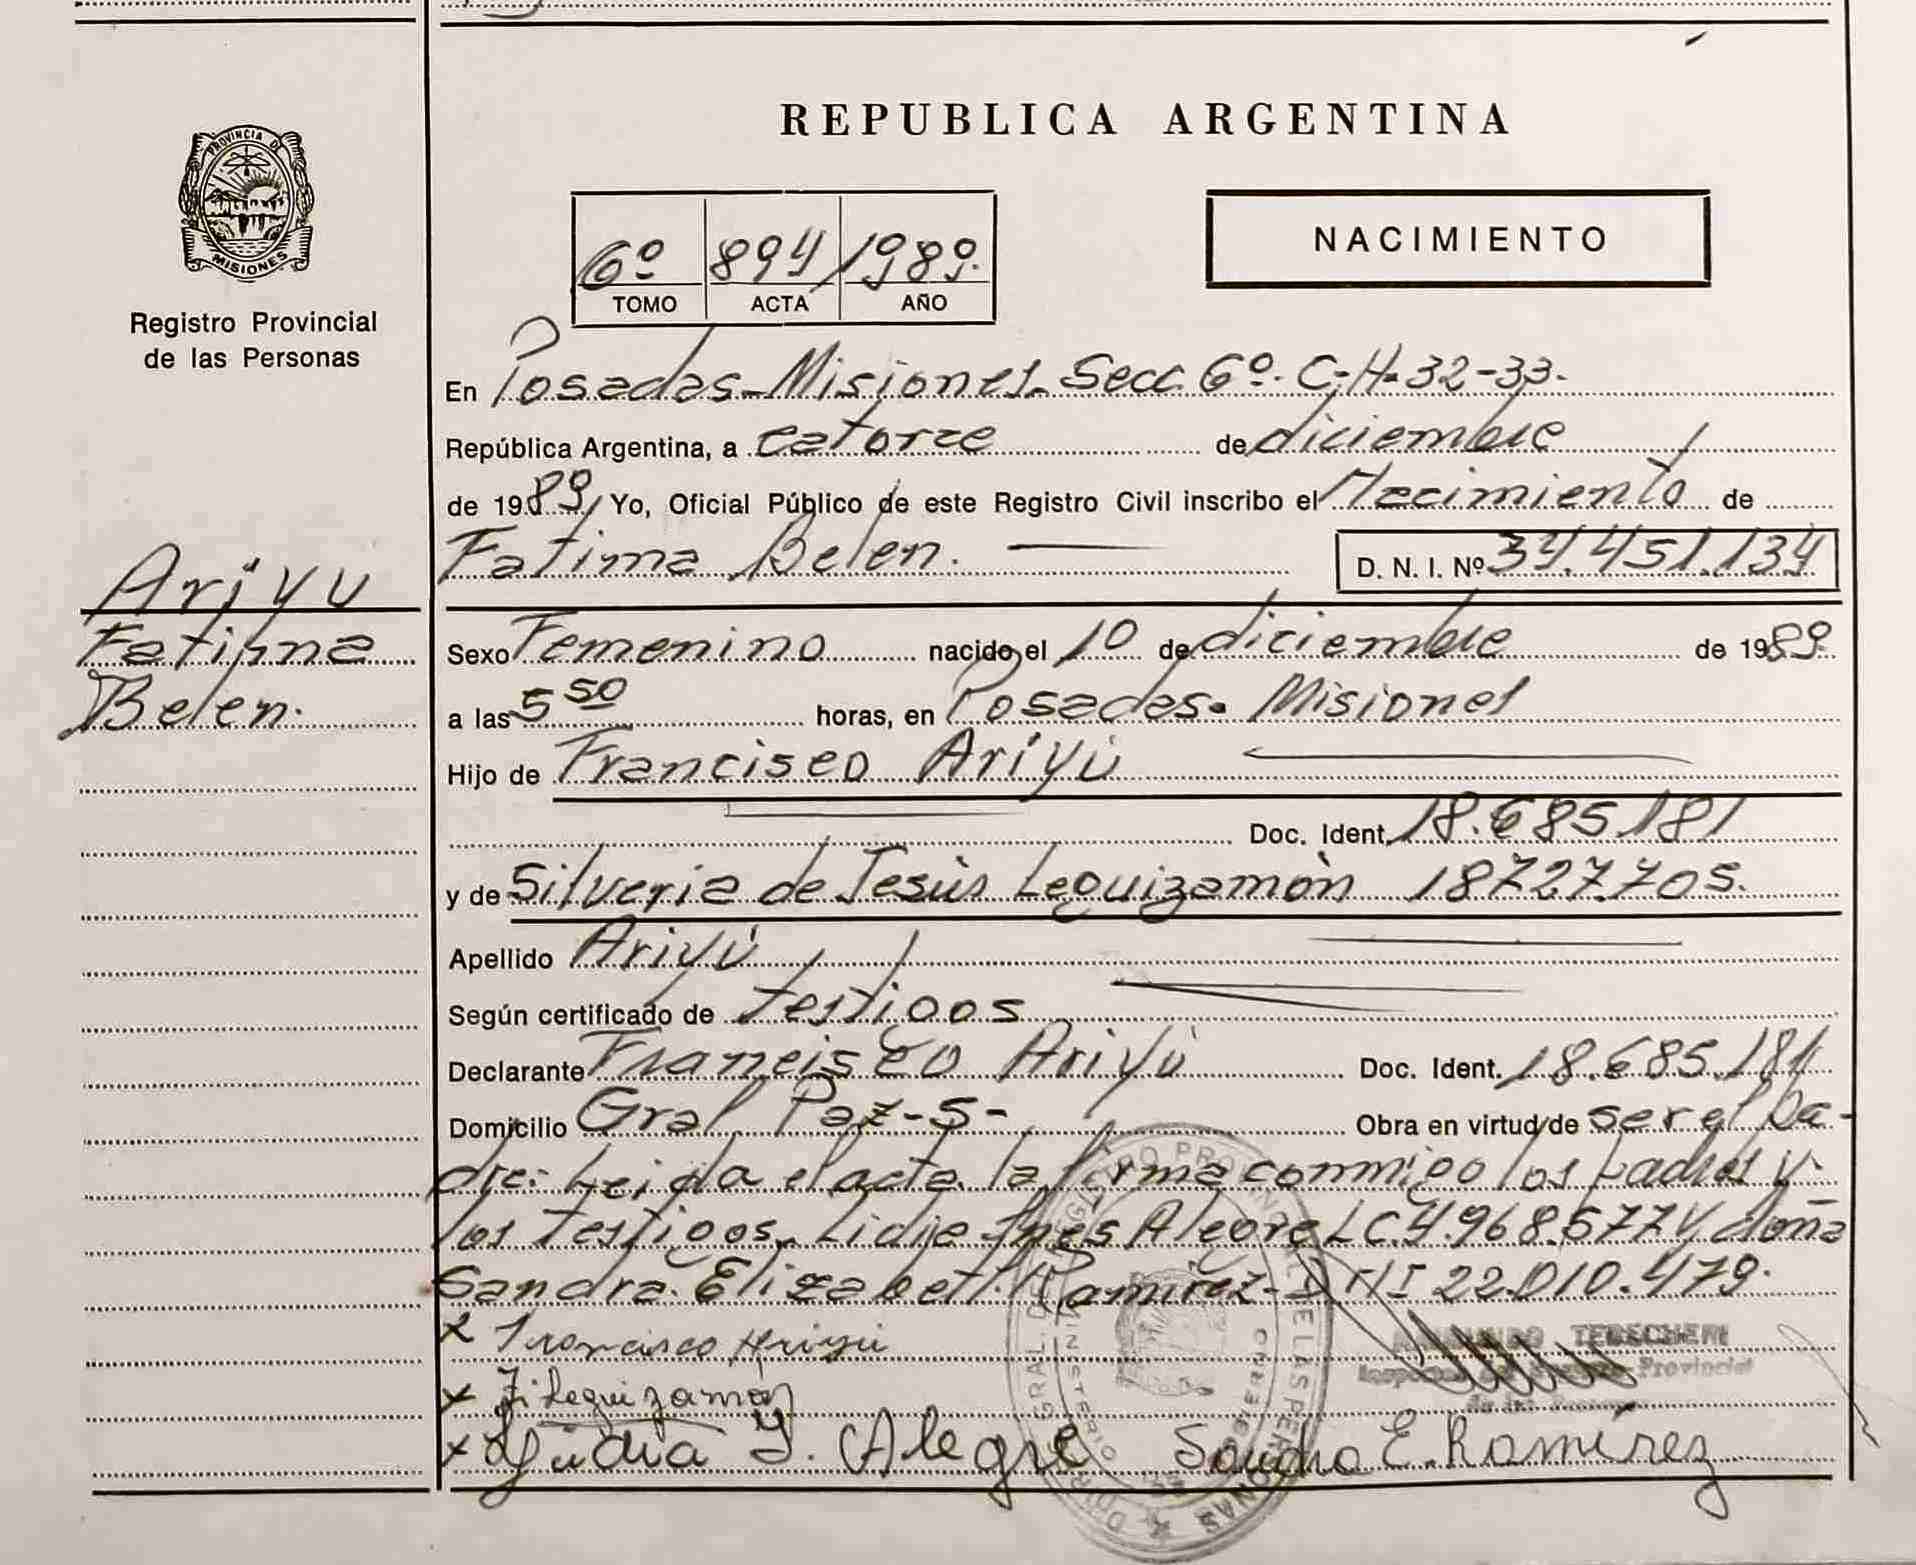 REPUBLICA ARGENTINA
PROVINCIA DE
MISIONES
Registro Provincial
de las Personas
NACIMIENTO
6º 894 1989.
TOMO ACTA AÑO
En Posadas-Misiones. Secc. 6º. C-H-32-33.
República Argentina, a catorce de diciembre
de 1989, Yo, Oficial Público de este Registro Civil inscribo el Nacimiento de
Fatima Belen. D. N. I. Nº 34.451.134
Ariyu
Fatima
Belen.
Sexo Femenino nacido el 10 de diciembre de 1989.
a las 5 50 horas, en Posadas. Misiones
Hijo de Francisco Ariyú
Doc. Ident. 18.685.181
y de Silveria de Jesús Leguizamón 18727.705.
Apellido Ariyú
Según certificado de testigos
Declarante Francisco Ariyú Doc. Ident. 18.685.181
Domicilio Gral Paz-5- Obra en virtud de ser el pa-
dre: Leida el acta la firma conmigo los padres y
los testigos. Lidia Ines Alegre LC.4.968.577 y doña
Sandra Elizabeth Ramirez-DNI 22.010.479.
x Francisco Ariyu
x Leguizamón
x Lydia Y. Alegre Sandra E. Ramírez
TEBECHERI
Provincial